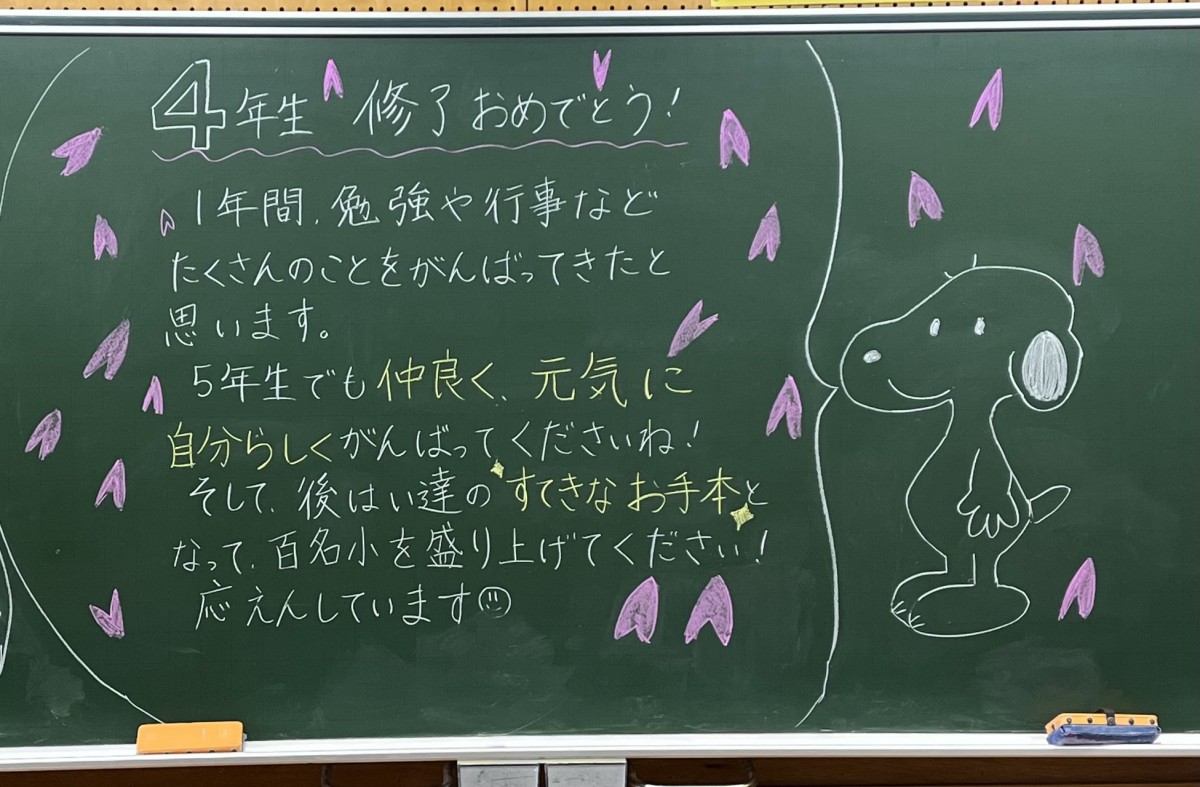 4年生 修了おめでとう!
1年間、勉強や行事など
たくさんのことをがんばってきたと
思います。
5年生でも仲良く、元気に
自分らしくがんばってくださいね!
そして、後はい達のすてきなお手本と
なって、百名小を盛り上げてください!
応えんしています☺